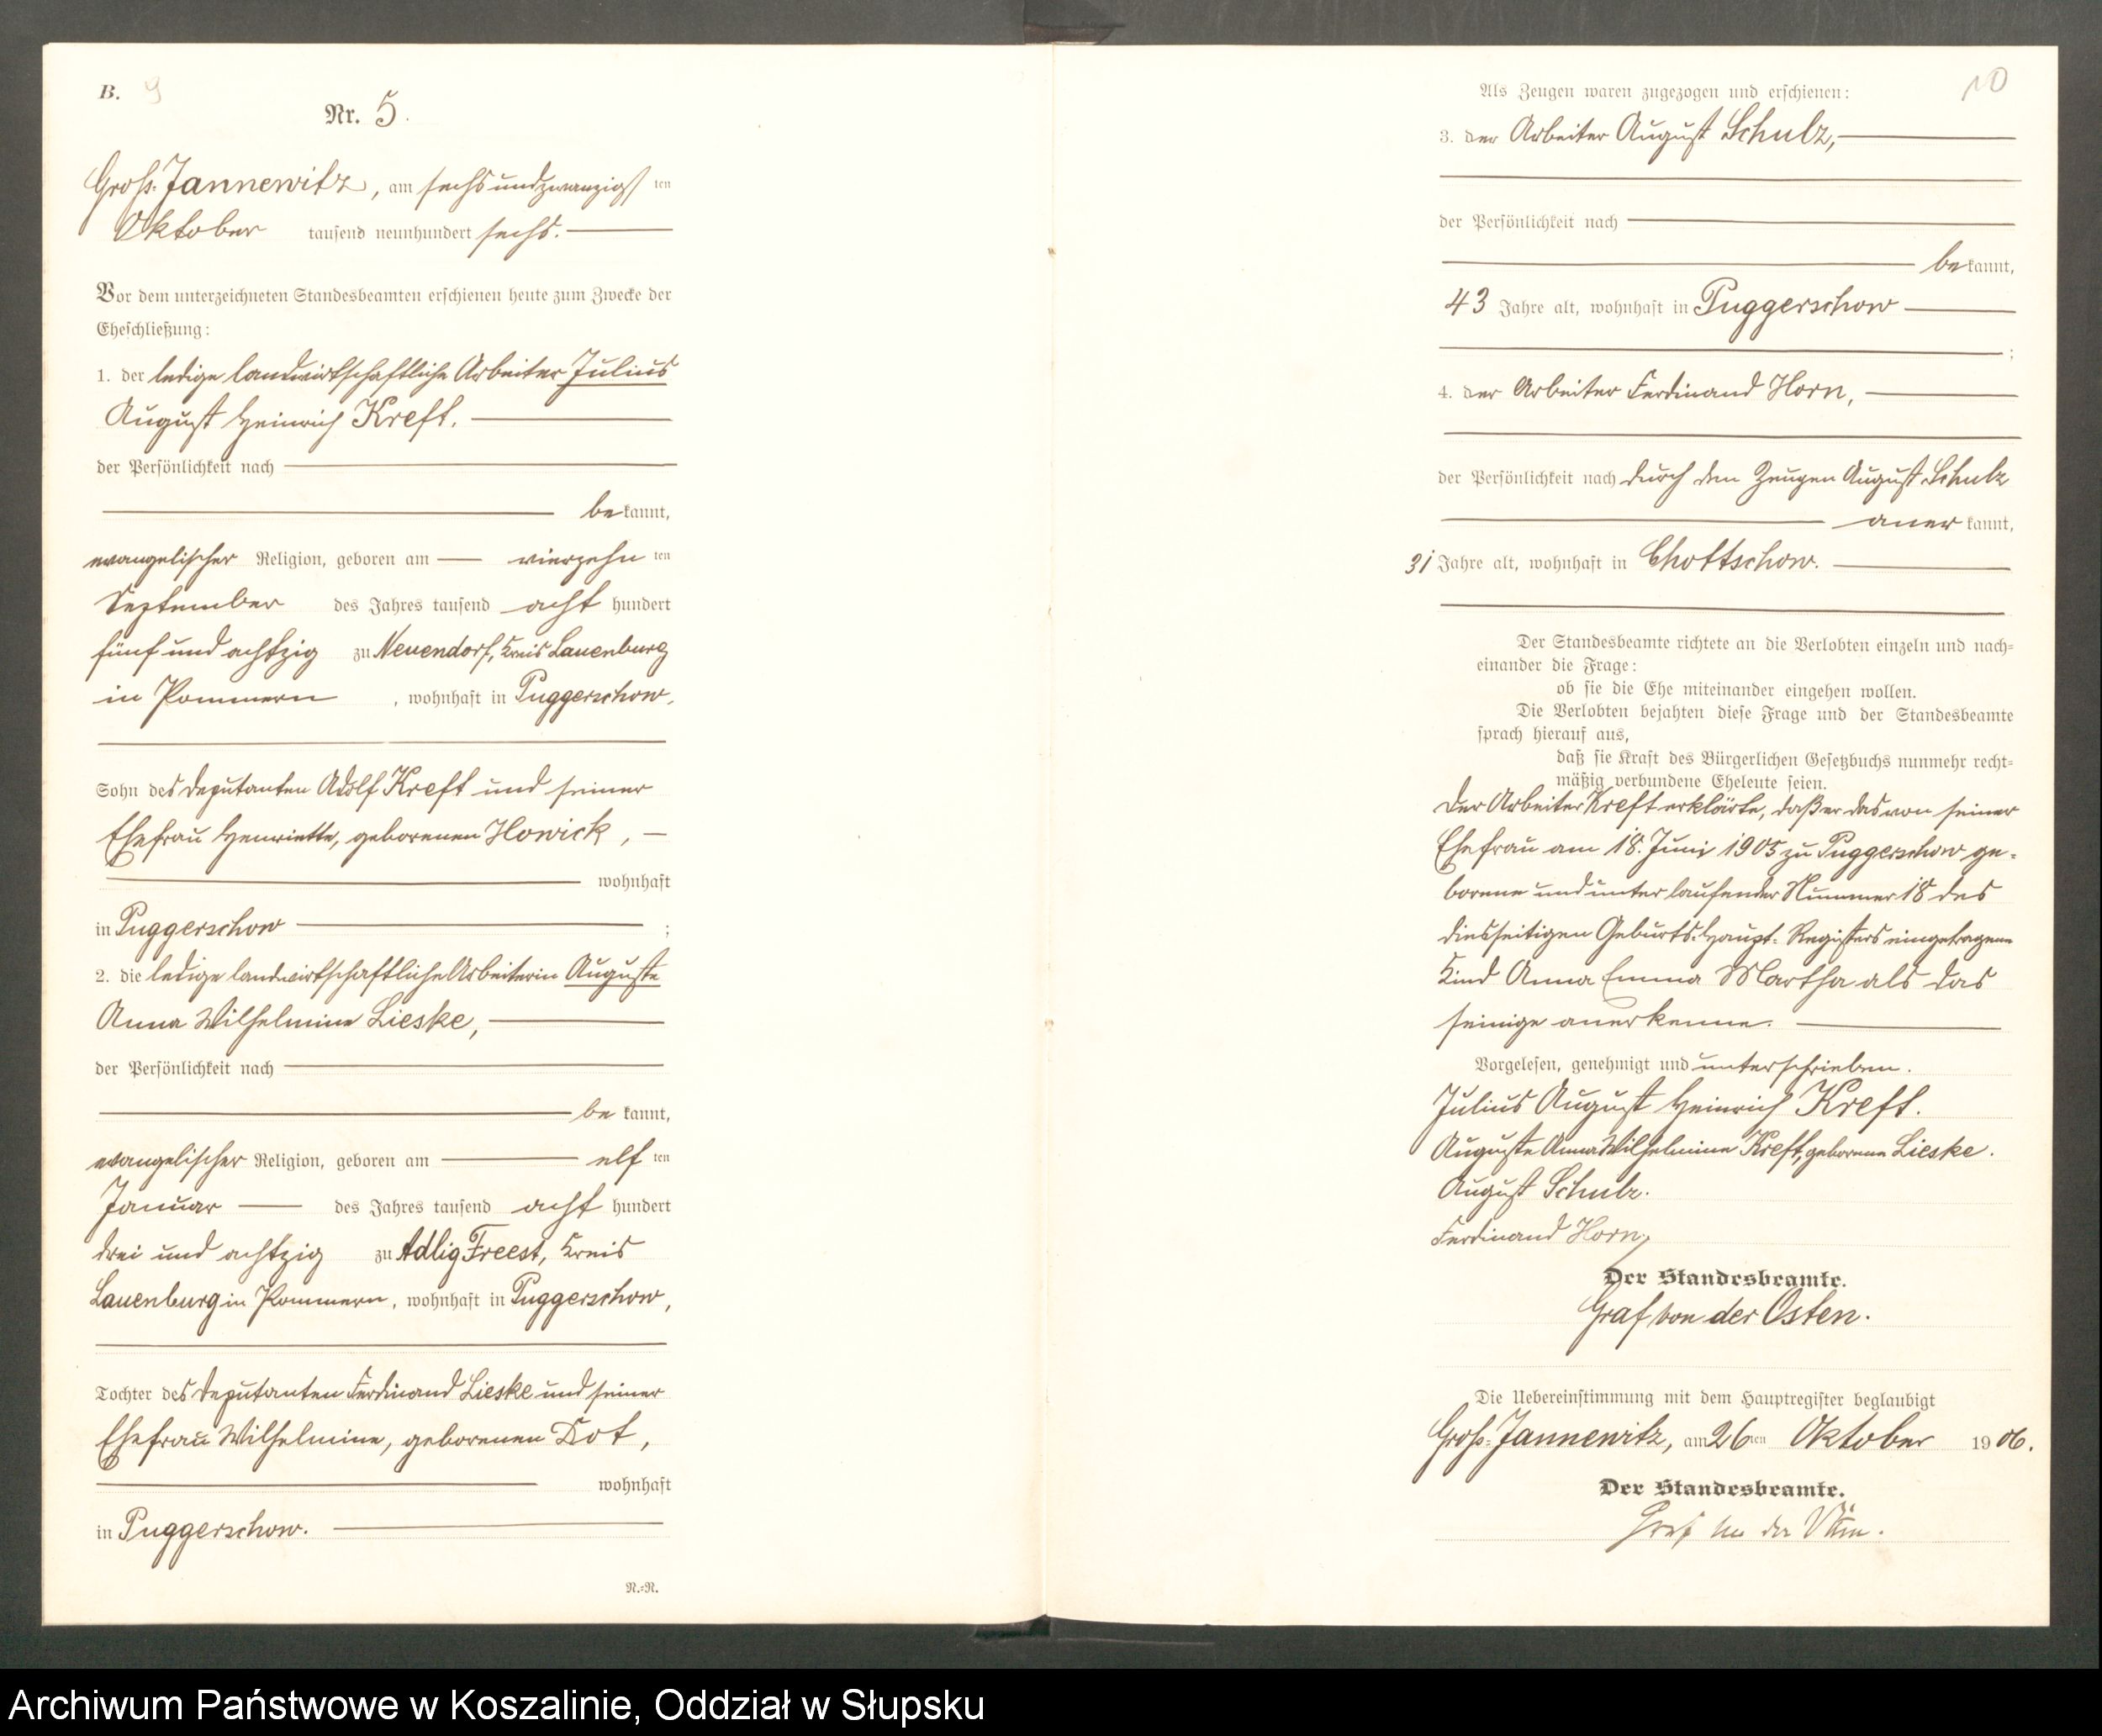 B. 9
Nr. 5.
Groß-Jannewitz, am sechsundzwanzigsten
Oktober tausend neunhundert sechs.
Vor dem unterzeichneten Standesbeamten erschienen heute zum Zwecke der
Eheschließung:
1. der ledige landwirtschaftliche Arbeiter Julius
August Heinrich Kreft,
der Persönlichkeit nach
bekannt,
evangelischer Religion, geboren am vierzehnten
September des Jahres tausend acht hundert
fünf und achtzig zu Neuendorf, Kreis Lauenburg
in Pommern, wohnhaft in Puggerschow,
Sohn des Deputanten Adolf Kreft und seiner
Ehefrau Henriette, geborenen Howick,
wohnhaft
in Puggerschow ;
2. die ledige landwirtschaftliche Arbeiterin Auguste
Anna Wilhelmine Lieske,
der Persönlichkeit nach
bekannt,
evangelischer Religion, geboren am elften
Januar des Jahres tausend acht hundert
drei und achtzig zu Adlig Freest, Kreis
Lauenburg in Pommern, wohnhaft in Puggerschow,
Tochter des Deputanten Ferdinand Lieske und seiner
Ehefrau Wilhelmine, geborenen Kot,
wohnhaft
in Puggerschow.
N.=N.
10
Als Zeugen waren zugezogen und erschienen:
3. der Arbeiter August Schulz,
der Persönlichkeit nach
bekannt,
43 Jahre alt, wohnhaft in Puggerschow
;
4. der Arbeiter Ferdinand Horn,
der Persönlichkeit nach durch den Zeugen August Schulz
anerkannt,
31 Jahre alt, wohnhaft in Chottschow.
Der Standesbeamte richtete an die Verlobten einzeln und nach=
einander die Frage:
ob sie die Ehe miteinander eingehen wollen.
Die Verlobten bejahten diese Frage und der Standesbeamte
sprach hierauf aus,
daß sie Kraft des Bürgerlichen Gesetzbuchs nunmehr recht=
mäßig verbundene Eheleute seien.
Der Arbeiter Kreft erklärte, daß er das von seiner
Ehefrau am 18. Juni 1905 zu Puggerschow ge=
borene und unter laufender Nummer 18 des
diesseitigen Geburts-Haupt-Registers eingetragene
Kind Anna Emma Martha als das
seinige anerkenne.
Vorgelesen, genehmigt und unterschrieben.
Julius August Heinrich Kreft.
Auguste Anna Wilhelmine Kreft, geborene Lieske.
August Schulz.
Ferdinand Horn.
Der Standesbeamte.
Graf von der Osten.
Die Uebereinstimmung mit dem Hauptregister beglaubigt
Groß-Jannewitz, am 26ten Oktober 1906.
Der Standesbeamte.
Graf von der Osten.
Archiwum Państwowe w Koszalinie, Oddział w Słupsku